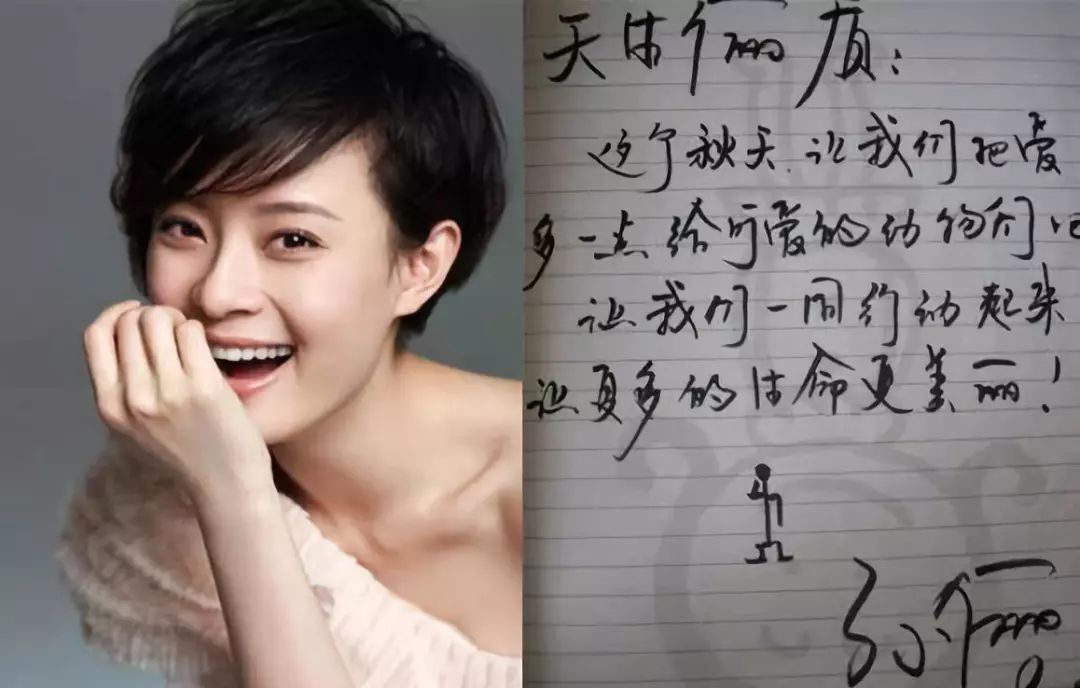 天生俪质：
这个秋天 让我们把爱
多一点给可爱的动物们吧
让我们一同行动起来
让更多的生命更美丽！
孙俪